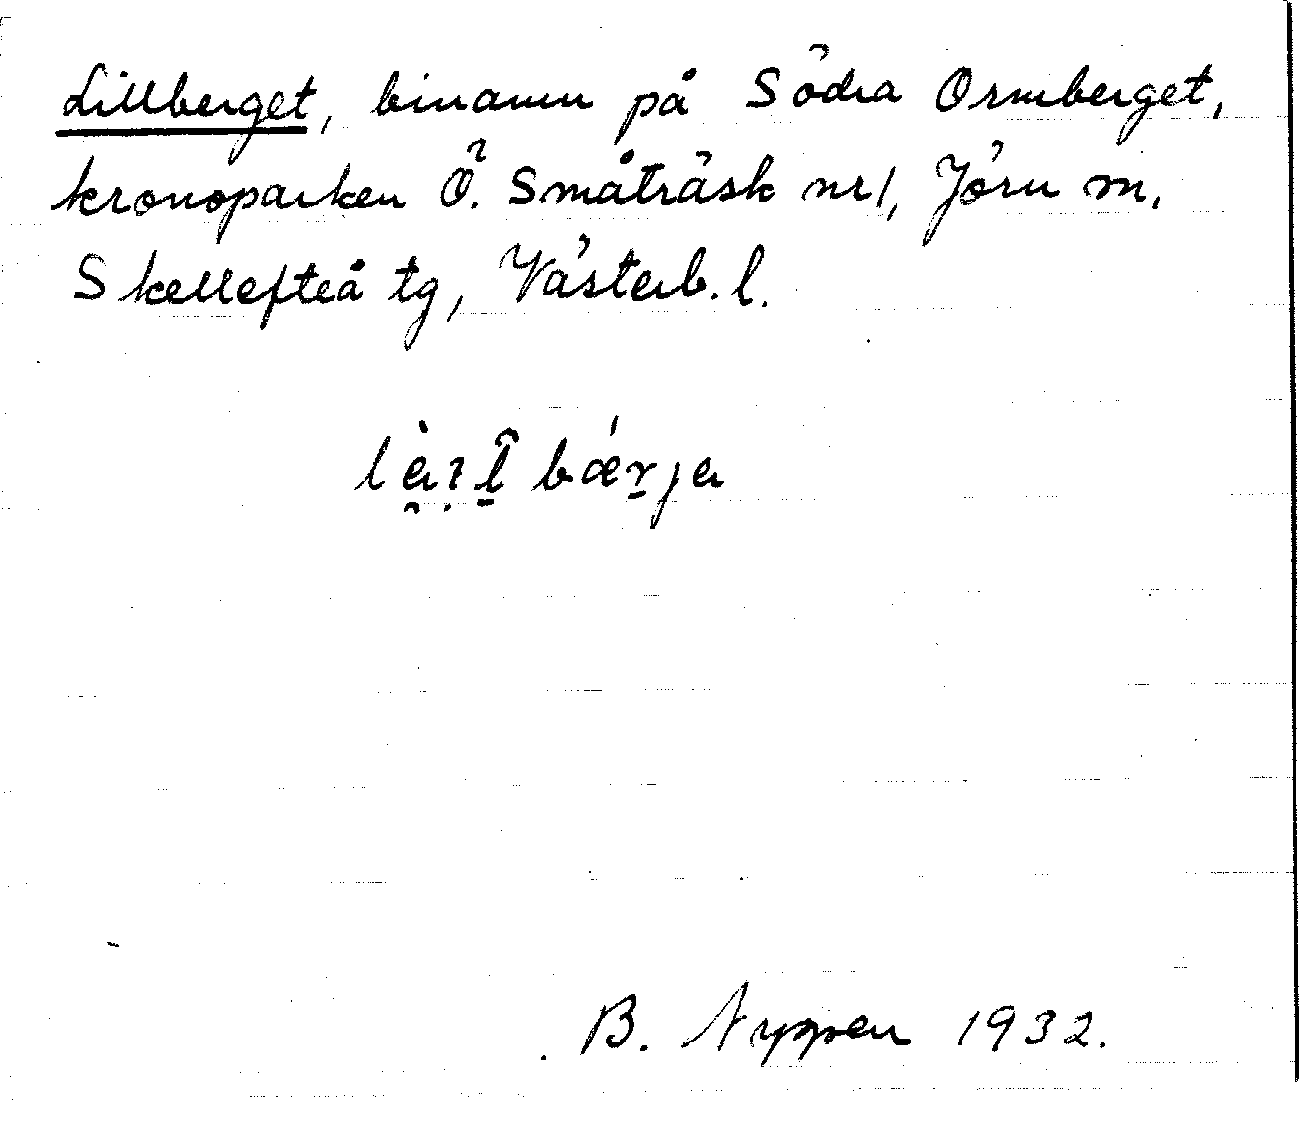 Lillberget, binamn på Södra Ormberget,
kronoparken Ö. Småträsk nr 1, Jörn sn,
Skellefteå tg, Västerb. l.
B. Nyppen 1932.